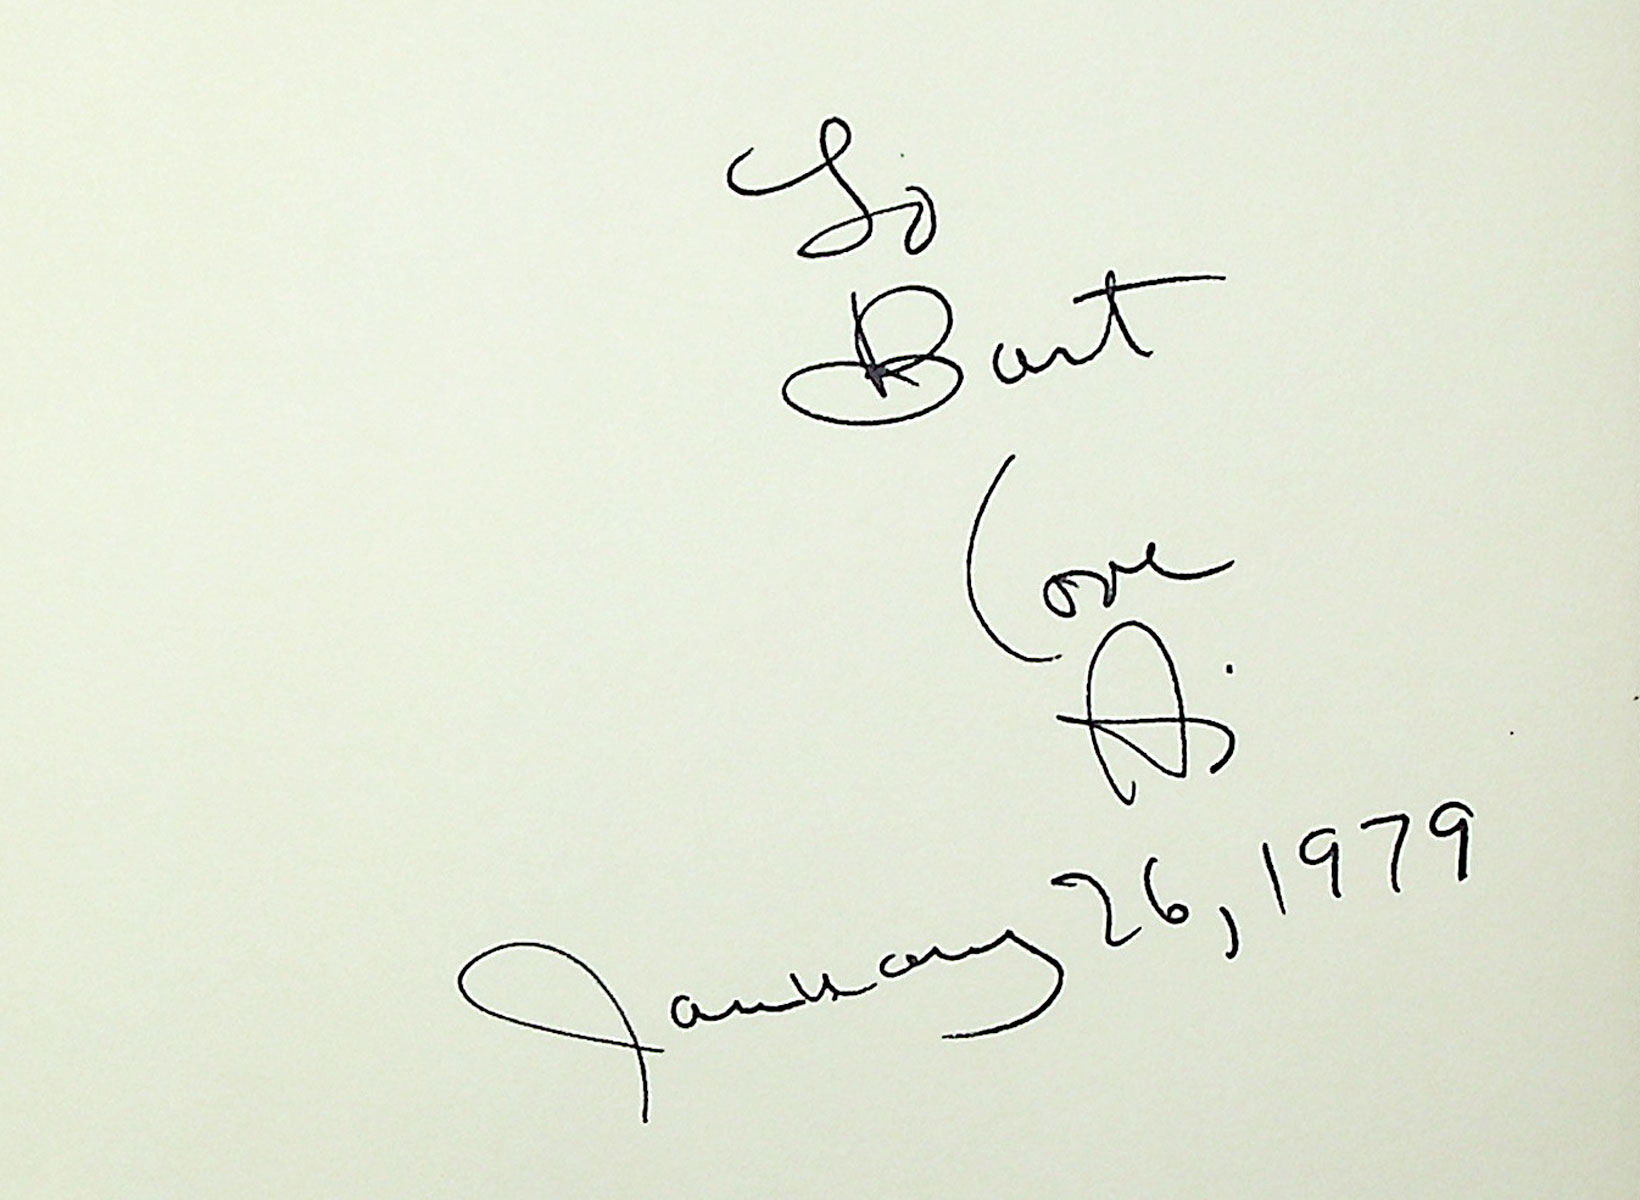 To
Bart
Love
Ai
January 26, 1979